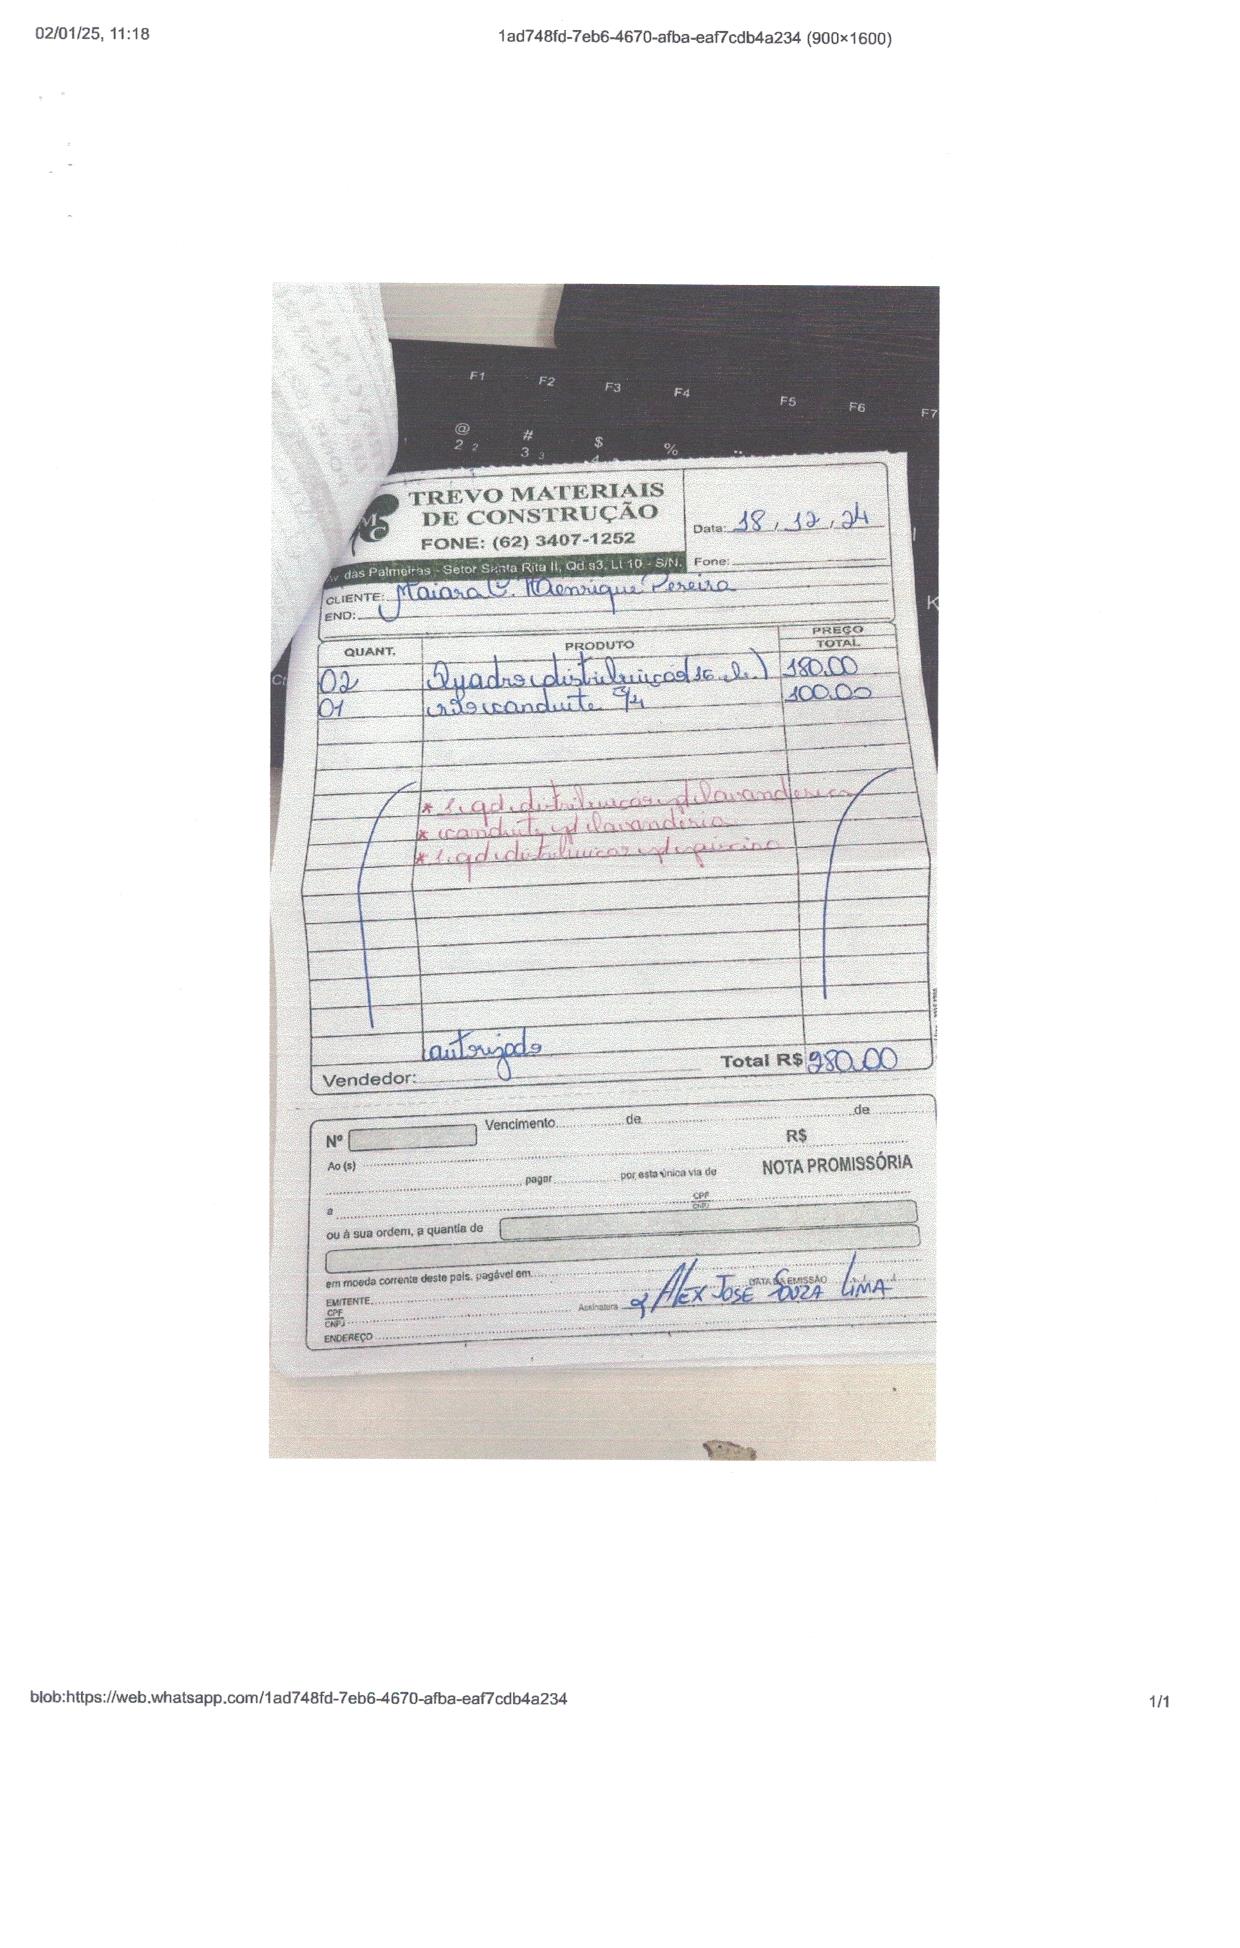 02/01/25, 11:18
1ad748fd-7eb6-4670-afba-eaf7cdb4a234 (900×1600)
F1 F2 F3 F4 F5 F6 F7
@ # $ %
2 2 3 3 4
MC
TREVO MATERIAIS
DE CONSTRUÇÃO
FONE: (62) 3407-1252
Av das Palmeiras - Setor Santa Rita II, Qd s3, Lt 10 - S/N.
Data: 18, 12, 24
Fone:
CLIENTE: Maiara C. Henrique Pereira
END:
QUANT. PRODUTO PREÇO TOTAL
02 Quadro distribuição (16 el.) 180.00
01 conduite 3/4 100.00
* 1. qd. distribuicao p/ lavanderia
* conduite p/ lavanderia
* 1. qd distribuicao p/ piscina
autorizado
Vendedor:
Total R$ 280.00
Nº
Vencimento de de
R$
Ao(s)
NOTA PROMISSÓRIA
pagar por esta única via de
a CPF CNPJ
ou à sua ordem, a quantia de
em moeda corrente deste país, pagável em
DATA DA EMISSÃO
EMITENTE
CPF
CNPJ
Assinatura Alex José Souza Lima
ENDEREÇO
blob:https://web.whatsapp.com/1ad748fd-7eb6-4670-afba-eaf7cdb4a234
1/1